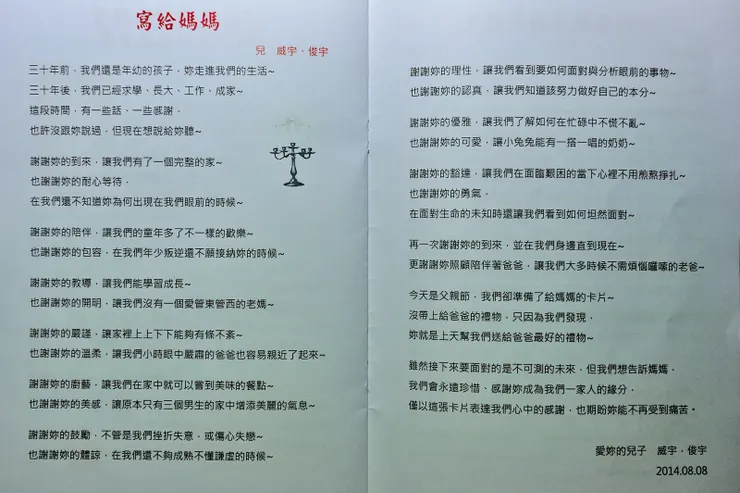 寫給媽媽
兒 威宇、俊宇
三十年前，我們還是年幼的孩子，妳走進我們的生活~
三十年後，我們已經求學、長大、工作、成家~
這段時間，有一些話、一些感謝，
也許沒跟妳說過，但現在想說給妳聽~
謝謝妳的到來，讓我們有了一個完整的家~
也謝謝妳的耐心等待，
在我們還不知道妳為何出現在我們眼前的時候~
謝謝妳的陪伴，讓我們的童年多了不一樣的歡樂~
也謝謝妳的包容，在我們年少叛逆還不願接納妳的時候~
謝謝妳的教導，讓我們能學習成長~
也謝謝妳的開明，讓我們沒有一個愛管東管西的老媽~
謝謝妳的嚴謹，讓家裡上上下下能夠有條不紊~
也謝謝妳的溫柔，讓我們小時眼中嚴肅的爸爸也容易親近了起來~
謝謝妳的廚藝，讓我們在家中就可以嘗到美味的餐點~
也謝謝妳的美感，讓原本只有三個男生的家中增添美麗的氣息~
謝謝妳的鼓勵，不管是我們挫折失意，或傷心失戀~
也謝謝妳的體諒，在我們還不夠成熟不懂謙虛的時候~
謝謝妳的理性，讓我們看到要如何面對與分析眼前的事物~
也謝謝妳的認真，讓我們知道該努力做好自己的本分~
謝謝妳的優雅，讓我們了解如何在忙碌中不慌不亂~
也謝謝妳的可愛，讓小兔兔能有一搭一唱的奶奶~
謝謝妳的豁達，讓我們在面臨艱困的當下心裡不用煎熬掙扎~
也謝謝妳的勇氣，
在面對生命的未知時還讓我們看到如何坦然面對~
再一次謝謝妳的到來，並在我們身邊直到現在~
更謝謝妳照顧陪伴著爸爸，讓我們大多時候不需煩惱囉嗦的老爸~
今天是父親節，我們卻準備了給媽媽的卡片~
沒帶上給爸爸的禮物，只因為我們發現，
妳就是上天幫我們送給爸爸最好的禮物~
雖然接下來要面對的是不可測的未來，但我們想告訴媽媽，
我們會永遠珍惜、感謝妳成為我們一家人的緣分，
僅以這張卡片表達我們心中的感謝，也期盼妳能不再受到痛苦。
愛妳的兒子 威宇，俊宇
2014.08.08